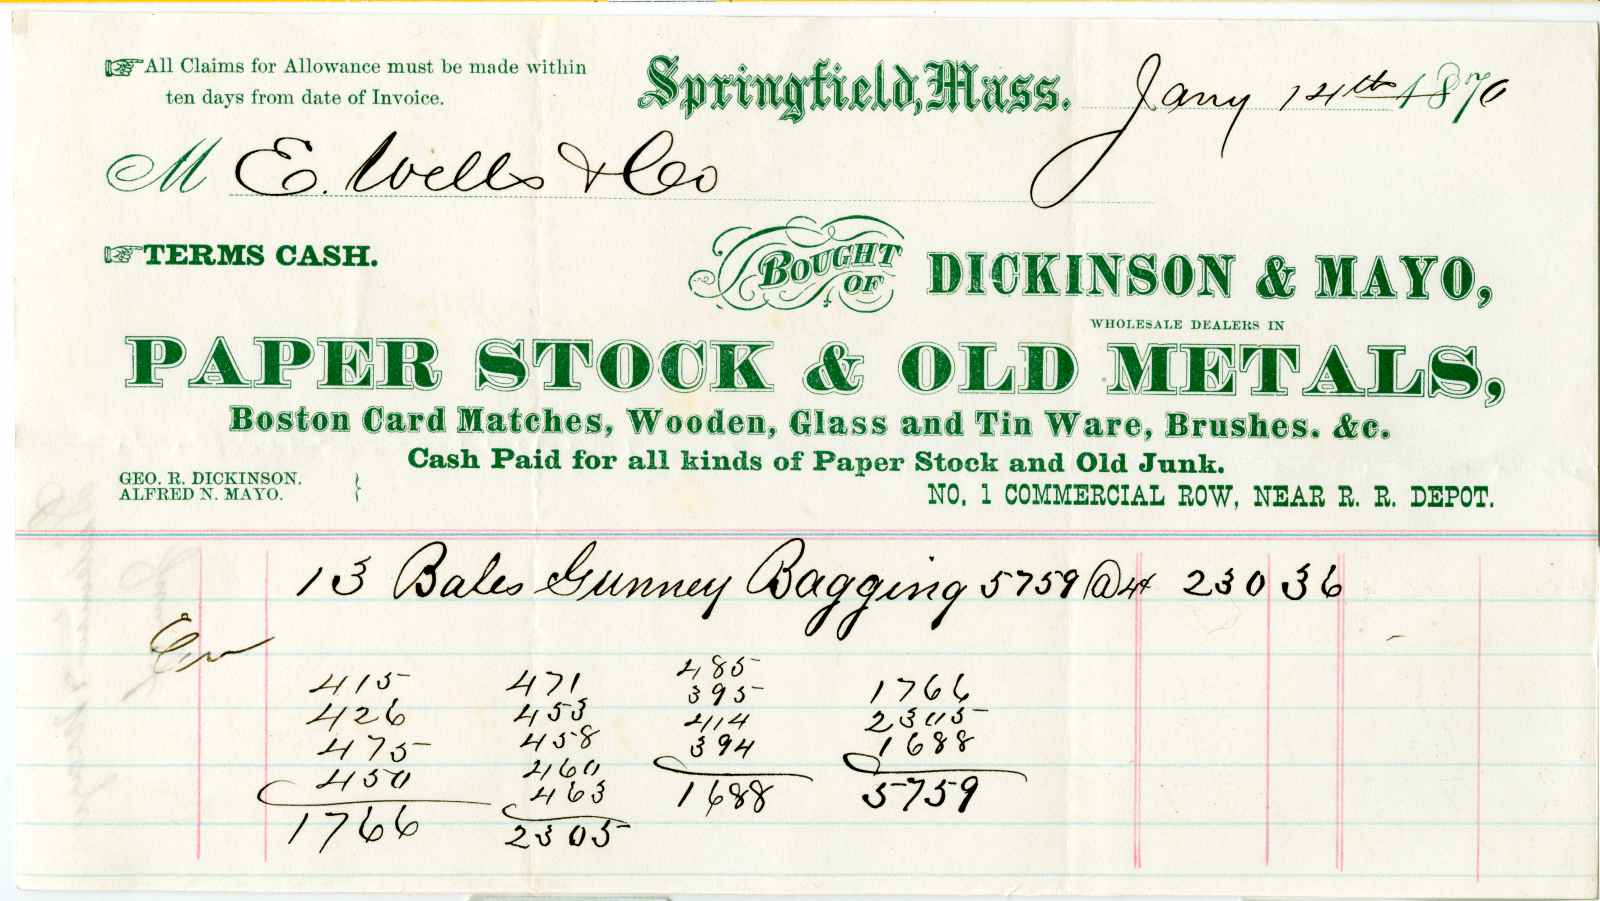 All Claims for Allowance must be made within
ten days from date of Invoice.
Springfield, Mass. Jany 14th 1870
M E. Wells & Co
TERMS CASH.
BOUGHT OF DICKINSON & MAYO,
WHOLESALE DEALERS IN
PAPER STOCK & OLD METALS,
Boston Card Matches, Wooden, Glass and Tin Ware, Brushes. &c.
Cash Paid for all kinds of Paper Stock and Old Junk.
GEO. R. DICKINSON.
ALFRED N. MAYO.
NO. 1 COMMERCIAL ROW, NEAR R. R. DEPOT.
13 Bales Gunney Bagging 5759 @ 4 230 36
415 471 485 1766
426 453 395 2305
475 458 414 1688
450 460 394 5759
1766 463 1688
2305